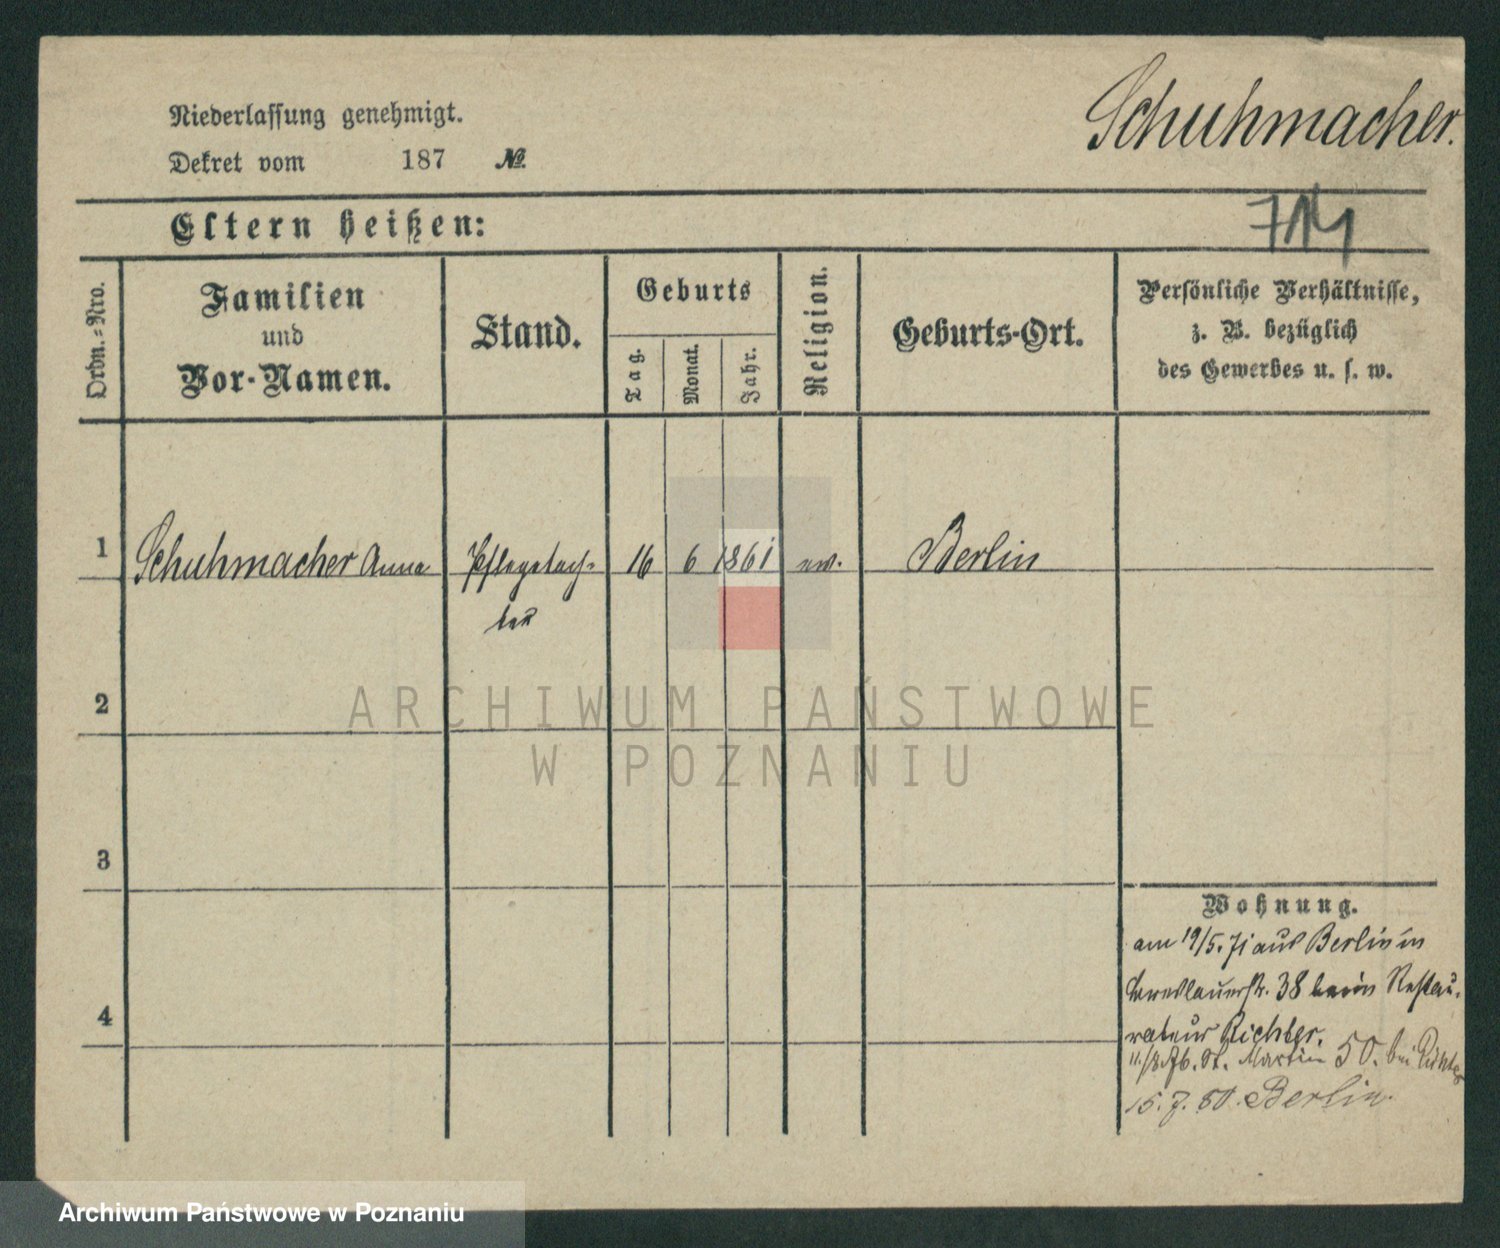 Schuhmacher.
Niederlassung genehmigt.
Dekret vom 187 №
714
Eltern heißen:
Ordn.-Nro.
Familien
und
Vor-Namen.
Stand.
Geburts
Tag.
Monat.
Jahr.
Religion.
Geburts-Ort.
Persönliche Verhältnisse,
z. B. bezüglich
des Gewerbes u. s. w.
1 Schuhmacher Anna Pflegetoch- 16 6 1861 ev. Berlin
ter
2
3
4
Wohnung.
am 19/5. 71 aus Berlin in
Breslauerstr. 38 beim Restau-
rateur Richter.
St. Martin 50. bei Richter
15. 7. 80. Berlin.
ARCHIWUM PAŃSTWOWE
W POZNANIU
Archiwum Państwowe w Poznaniu